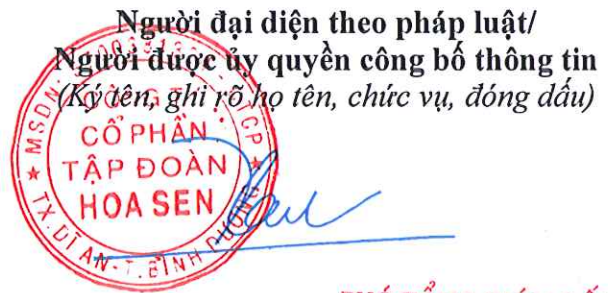 Người đại diện theo pháp luật/
Người được ủy quyền công bố thông tin
(Ký tên, ghi rõ họ tên, chức vụ, đóng dấu)
CỔ PHẦN
TẬP ĐOÀN
HOA SEN
TX.DĨ AN-T.BÌNH DƯƠNG